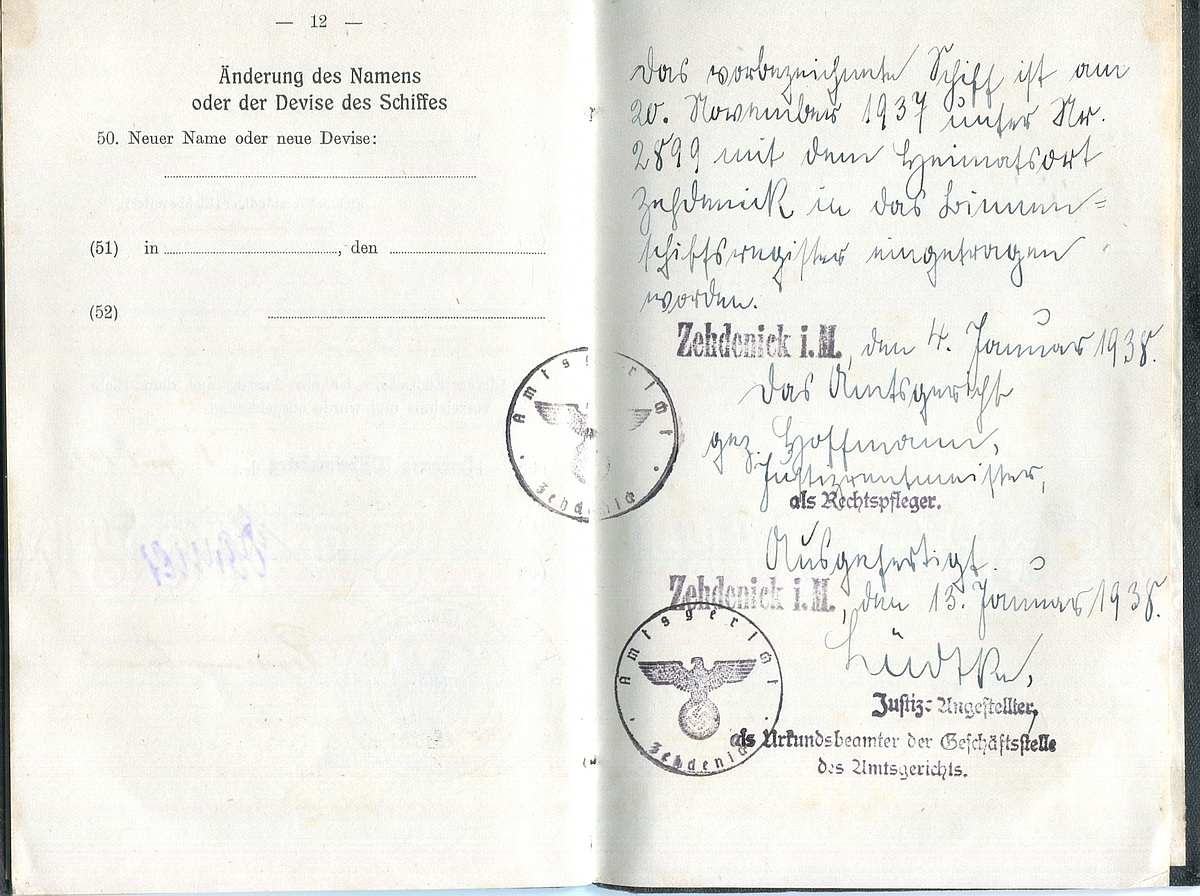 — 12 —
Änderung des Namens
oder der Devise des Schiffes
50. Neuer Name oder neue Devise:
(51) in , den
(52)
Das vorbezeichnete Schiff ist am
20. November 1937 unter Nr.
2899 mit dem Heimatsort
Zehdenick in das Binnen=
schiffsregister eingetragen
worden.
Zehdenick i.M., den 4. Januar 1938.
Das Amtsgericht
gez. Hoffmann,
Justizrentmeister,
als Rechtspfleger.
Amtsgericht
Zehdenick
Ausgefertigt.
Zehdenick i.M., den 13. Januar 1938.
Lüdtke,
Amtsgericht
Zehdenick
Justiz-Angestellter,
als Urkundsbeamter der Geschäftsstelle
des Amtsgerichts.